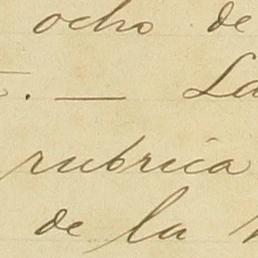 ocho de
. — La
rubrica
de la